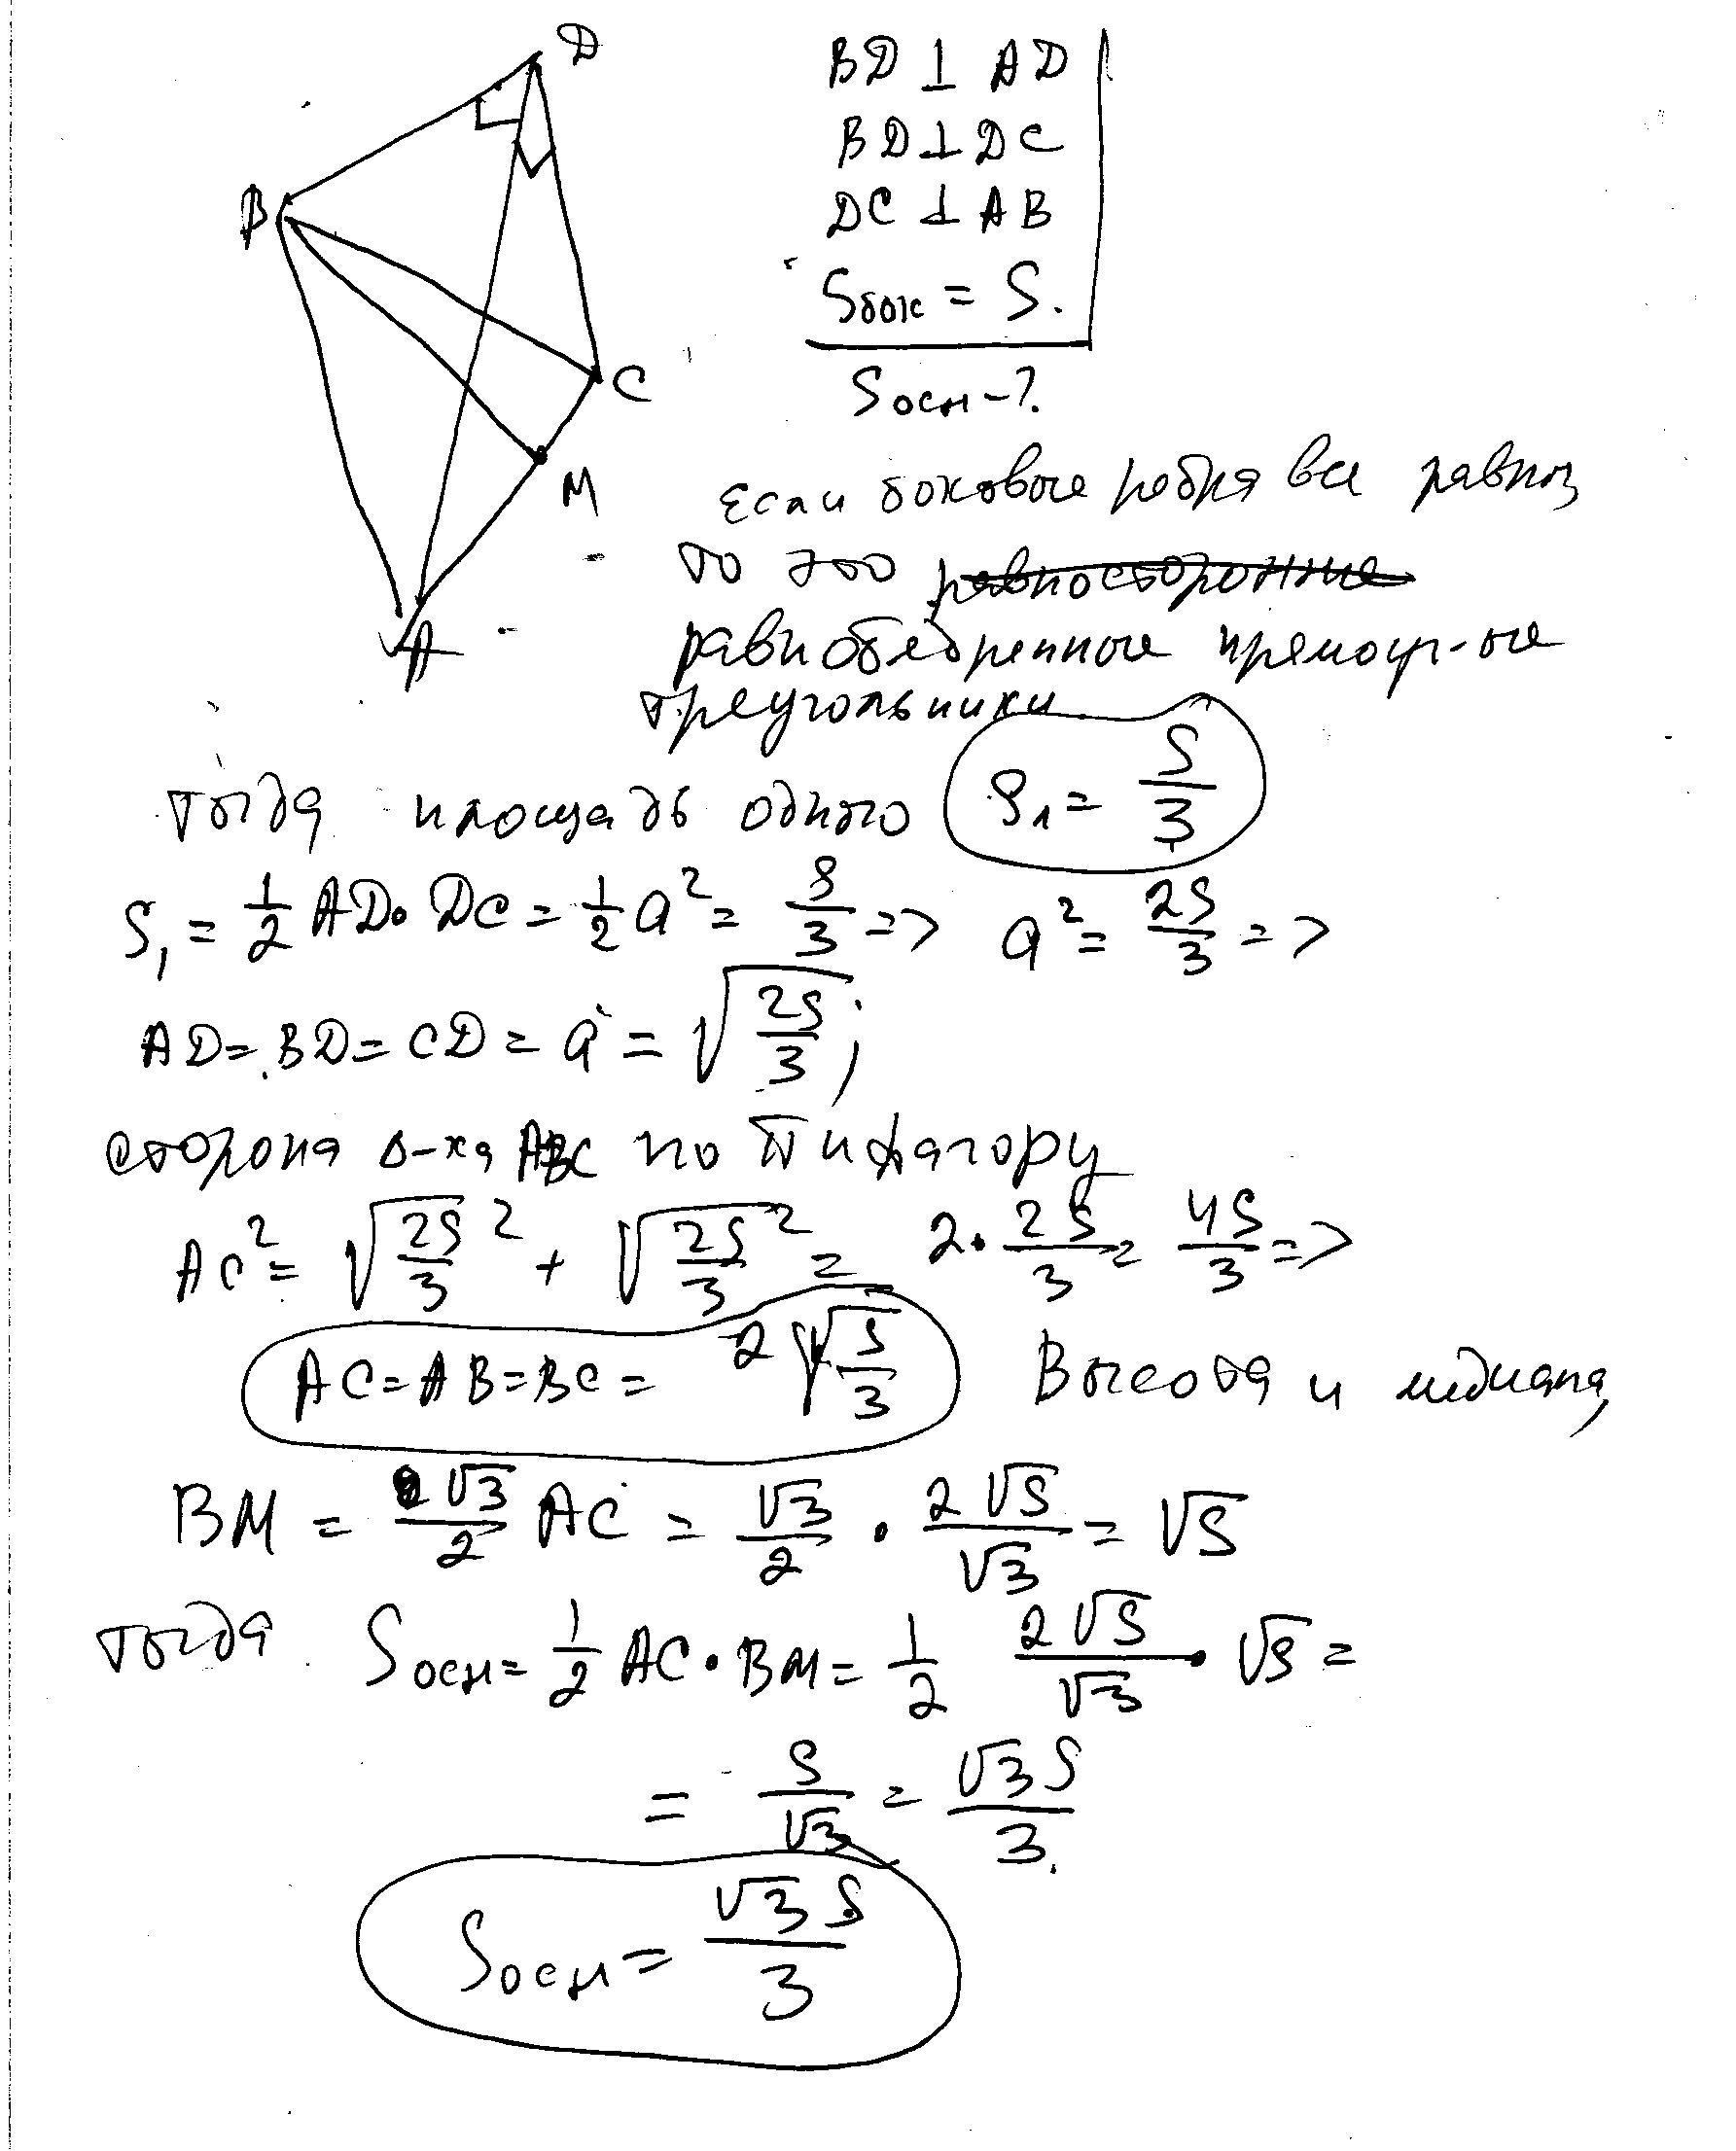 D
B
C
M
A
BD ⊥ AD
BD ⊥ DC
DC ⊥ AB
Sбок = S.
Sосн - ?
Если боковые ребра все равны
то это равносторонние
равнобедренные прямоуг-ые
треугольники.
тогда площадь одного S₁ = S/3
S₁ = 1/2 AD · DC = 1/2 a² = S/3 => a² = 2S/3 =>
AD = BD = CD = a = √(2S/3);
сторона Δ-ка ABC по Пифагору
AC² = √(2S/3)² + √(2S/3)² = 2 · 2S/3 = 4S/3 =>
AC = AB = BC = 2√(S/3) Высота и медиана,
BM = √3/2 AC = √3/2 · 2√S/√3 = √S
тогда Sосн = 1/2 AC · BM = 1/2 2√S/√3 · √S =
= S/√3 = √3S/3.
Sосн = √3S/3